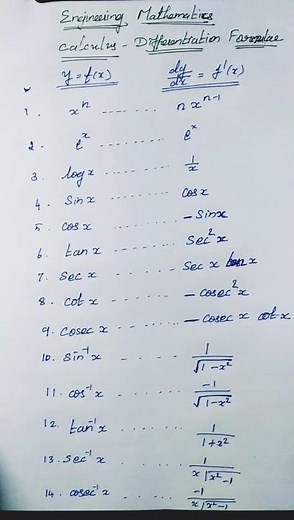 Engineering Mathematics
Calculus - Differentiation Formulae
y = f(x) dy/dx = f'(x)
1. xⁿ ------ n xⁿ⁻¹
2. eˣ ........ eˣ
3. log x ........ 1/x
4. Sin x ........ cos x
5. cos x ........ - Sin x
6. tan x ........ Sec² x
7. Sec x ........ Sec x tan x
8. cot x ........ - cosec² x
9. cosec x ........ - cosec x cot x
10. Sin⁻¹ x - - - - - 1/√(1-x²)
11. cos⁻¹ x - - - - - -1/√(1-x²)
12. tan⁻¹ x - - - - 1/(1+x²)
13. Sec⁻¹ x - - - - 1/(x√(x²-1))
14. cosec⁻¹ x - - - - -1/(x√(x²-1))